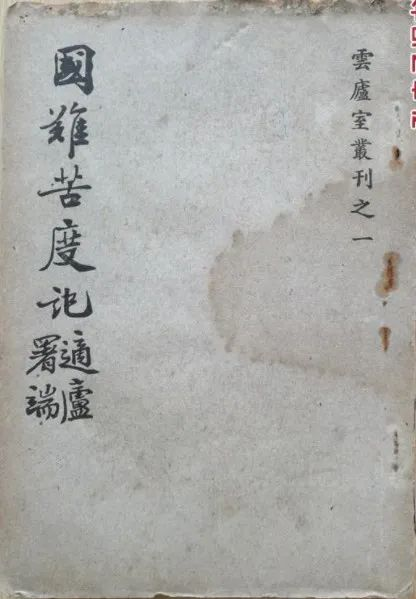 雲廬室叢刊之一
國難苦度記
適廬
署端